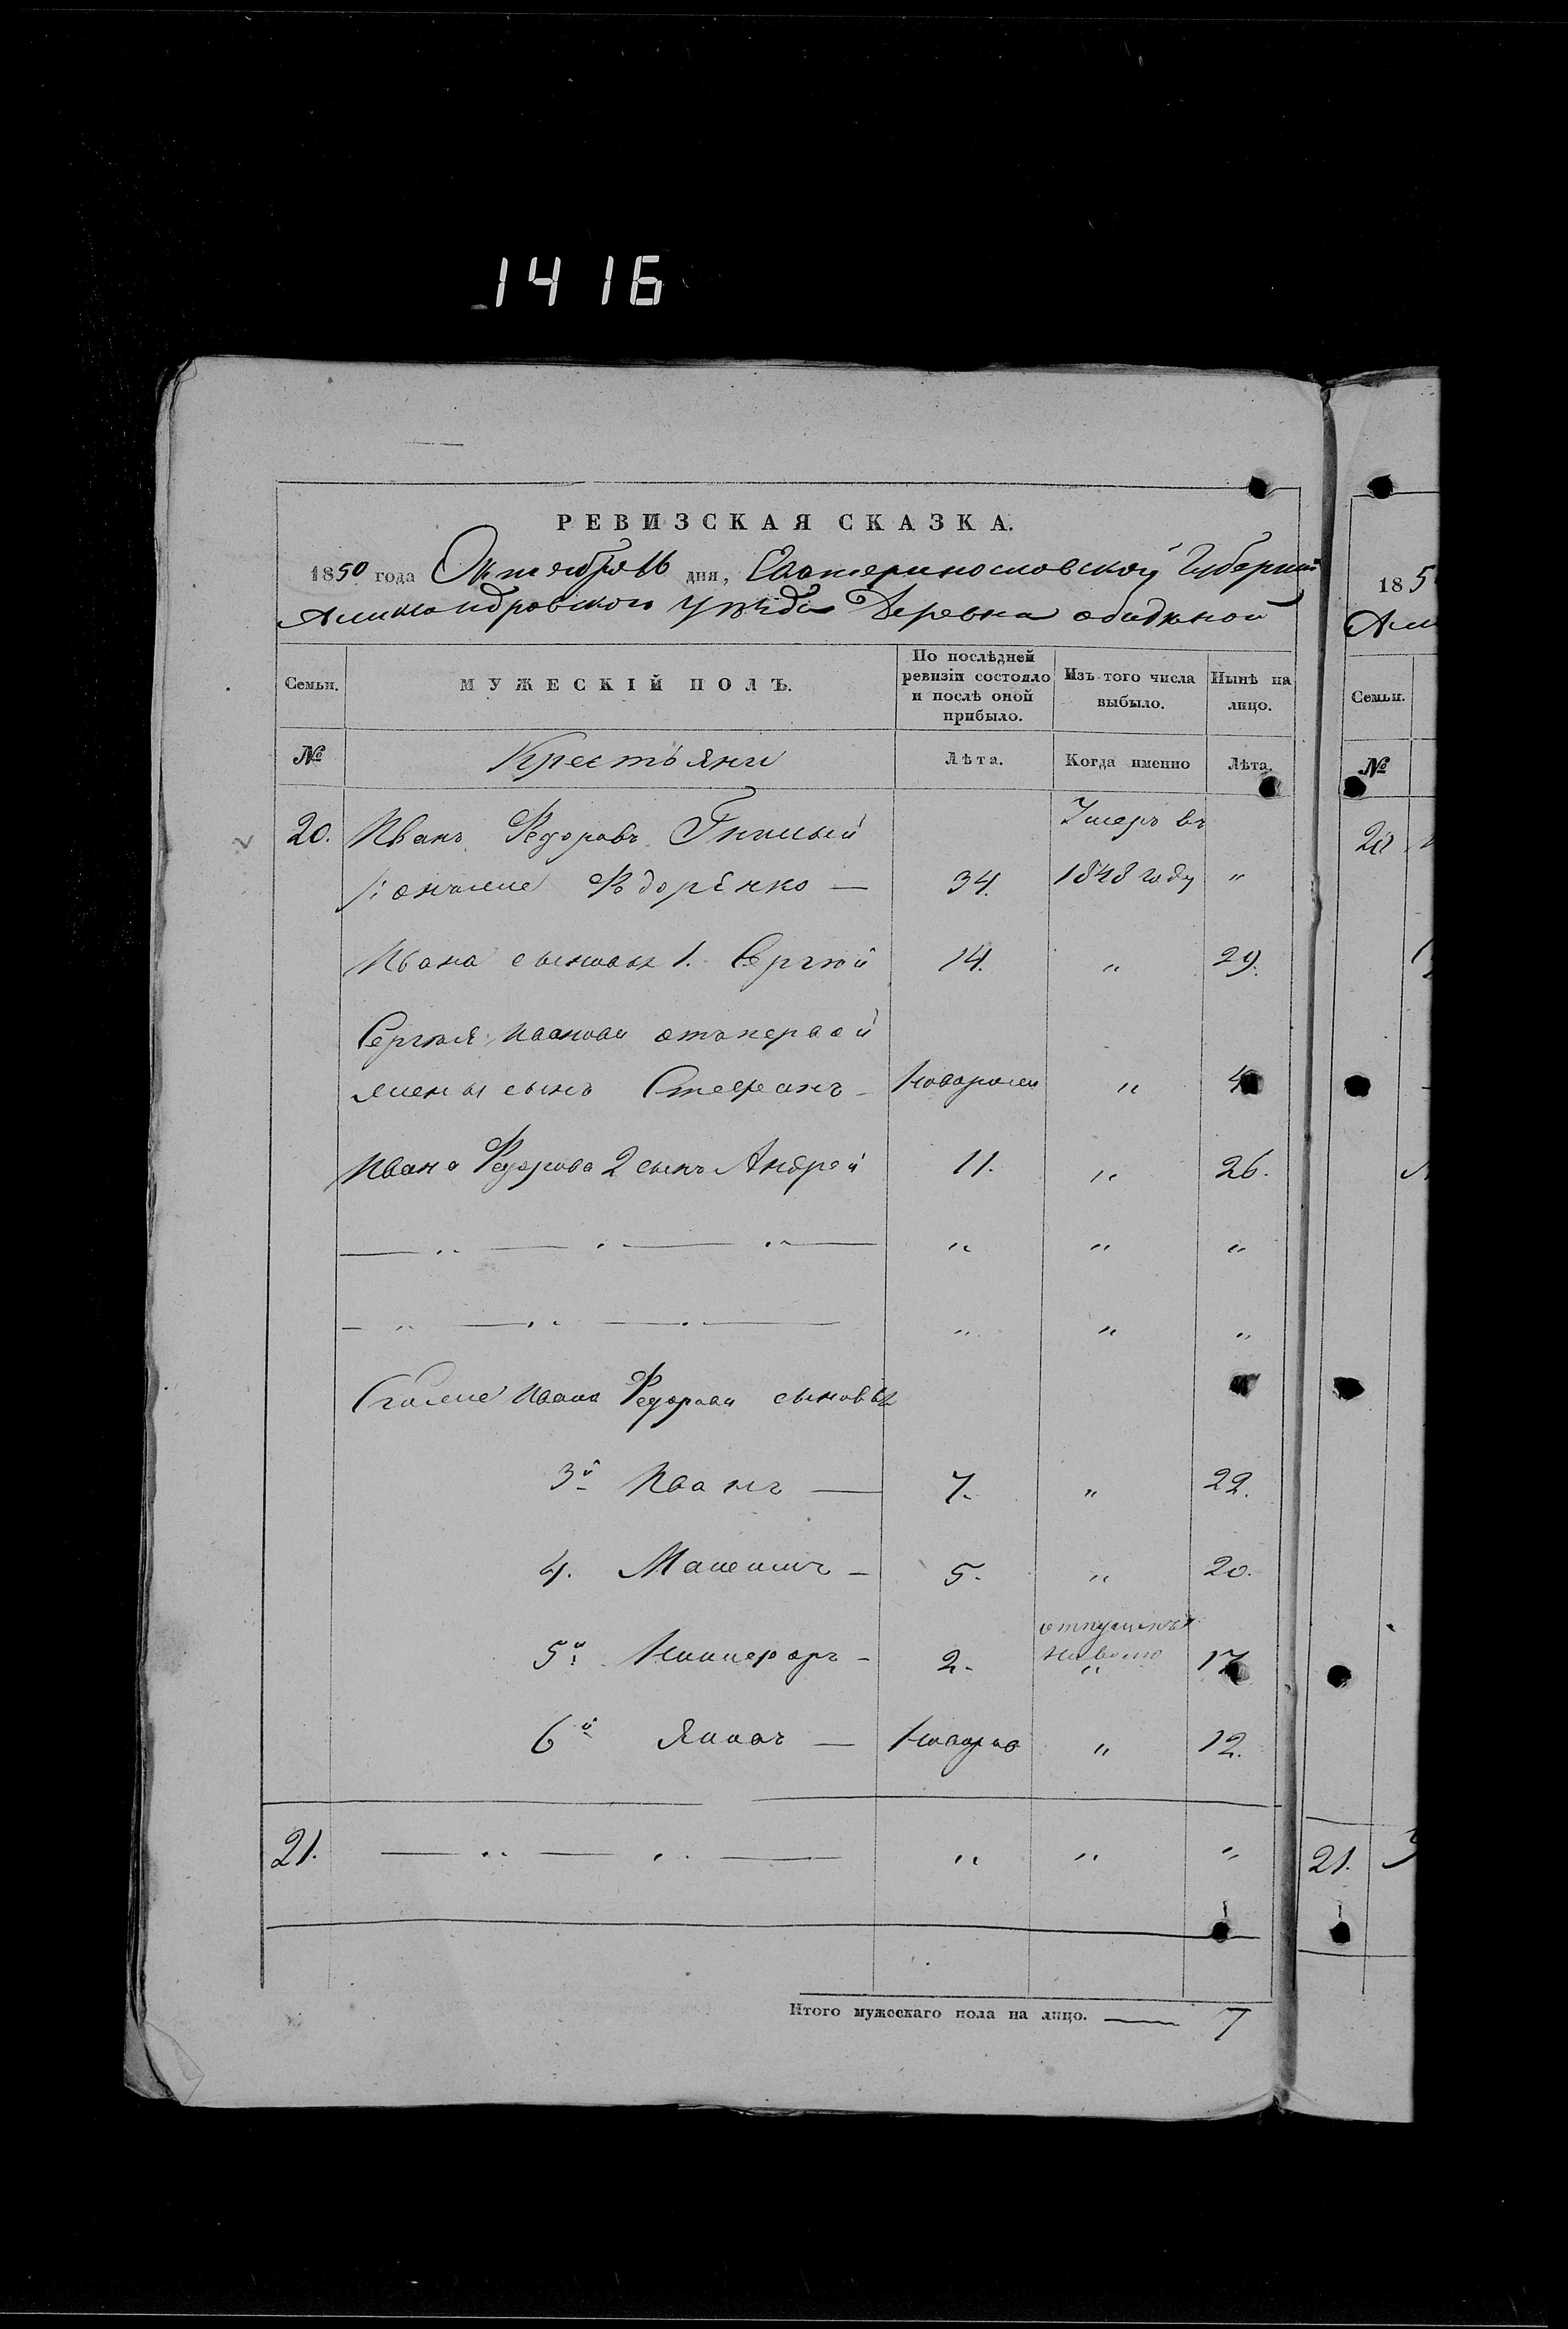 1416
РЕВИЗСКАЯ СКАЗКА.
1850 года Октября 16 дня, Екатеринославской Губерніи
Александровского Уѣзда Деревна обидной
Семьи.
МУЖЕСКІЙ ПОЛЪ.
По послѣдней ревизіи состояло и послѣ оной прибыло.
Изъ того числа выбыло.
Нынѣ на лицо.
№
Крестьяни
Лѣта.
Когда именно
Лѣта.
20. Иванъ Федоровъ Гнилый Умеръ въ
онъже Фѣдорѣнко — 34. 1848 году "
Ивана сыновья 1. Сергѣй 14. " 29.
Сергѣя Иванова отъ первой
жены сынъ Стефанъ — новорожен " 4
Ивана Федорова 2 сынъ Андрей 11. " 26.
— " — " — " — " " "
— " — " — " — " " "
Сегоже Ивана Федорова сыновья
3й Иванъ — 7. " 22.
4. Максимъ — 5. " 20.
отпущенъ
5й Никифоръ — 2. на волю " 17
6й Яковъ — новорож " 12.
21. — " — " — " " "
Итого мужескаго пола на лицо. — 7
185
Але
Семьи.
№
20
21.